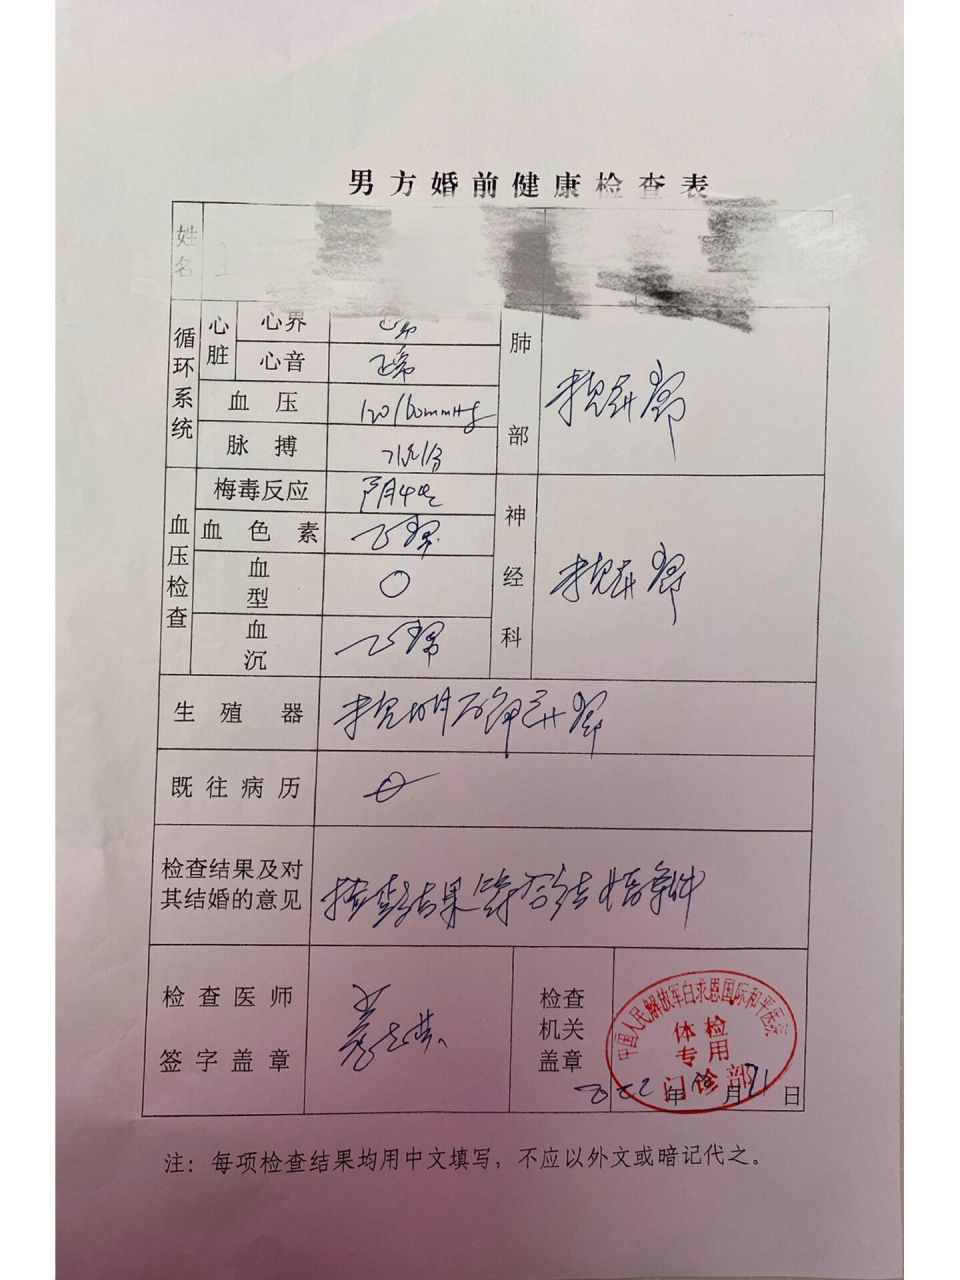 男方婚前健康检查表
姓名
循环系统
心脏
心界 正常
心音 正常
血压 120/80mmHg
脉搏
肺部 未见异常
血压检查
梅毒反应 阴性
血色素 正常
血型 O
血沉 正常
神经科 未见异常
生殖器 未见明显异常
既往病历
检查结果及对其结婚的意见
检查结果符合结婚条件
检查医师
签字盖章
检查机关盖章
中国人民解放军白求恩国际和平医院
体检
专用
门诊部
年 月21日
注：每项检查结果均用中文填写，不应以外文或暗记代之。